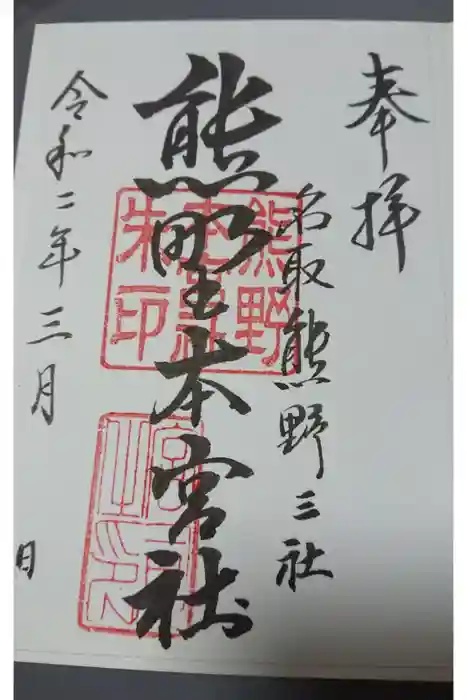 奉拝
名取熊野三社
熊野本宮社
令和二年三月 日
熊野
本宮社
朱印